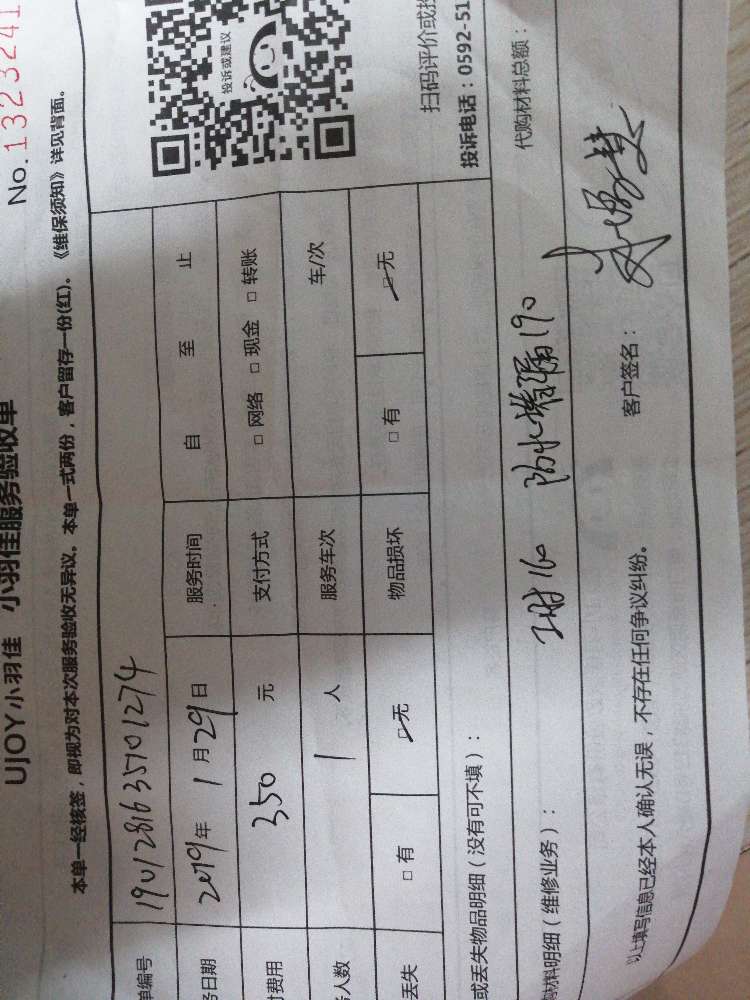 UJOY小羽佳 小羽佳服务验收单
No.1323241
本单一经核签，即视为对本次服务验收无异议。本单一式两份，客户留存一份(红)。《维保须知》详见背面。
单编号 1901281635701274
务日期 2019年 1月29日 服务时间 自 至 止
付费用 350 元 支付方式 □ 网络 □ 现金 □ 转账
务人数 1 人 服务车次 车/次
丢失 □ 有 □ 无 物品损坏 □ 有 □ 无
投诉或建议
扫码评价或投
投诉电话：0592-51
或丢失物品明细（没有可不填）：
购材料明细（维修业务）： 工时160 防水堵漏190 代购材料总额：
以上填写信息已经本人确认无误，不存在任何争议纠纷。 客户签名：